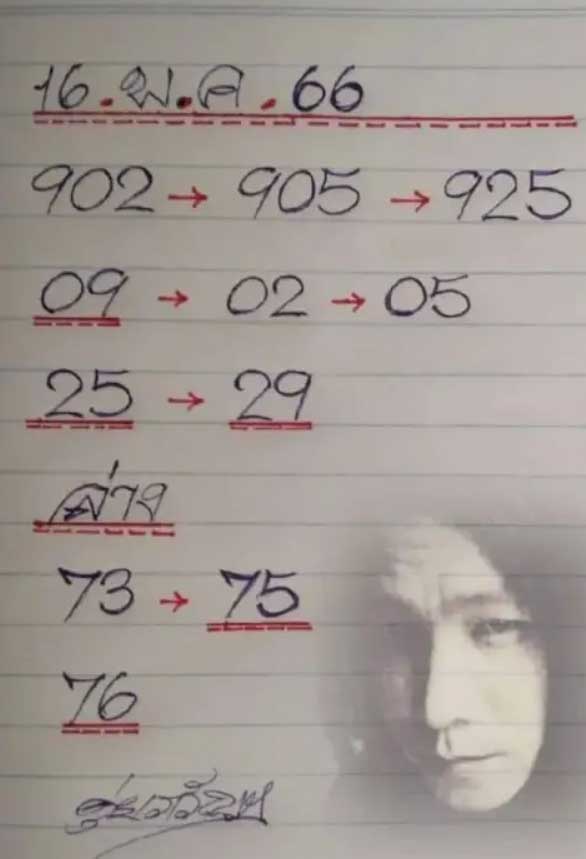 16.พ.ค.66
902→905→925
09→02→05
25→29
ล่าง
73→75
76